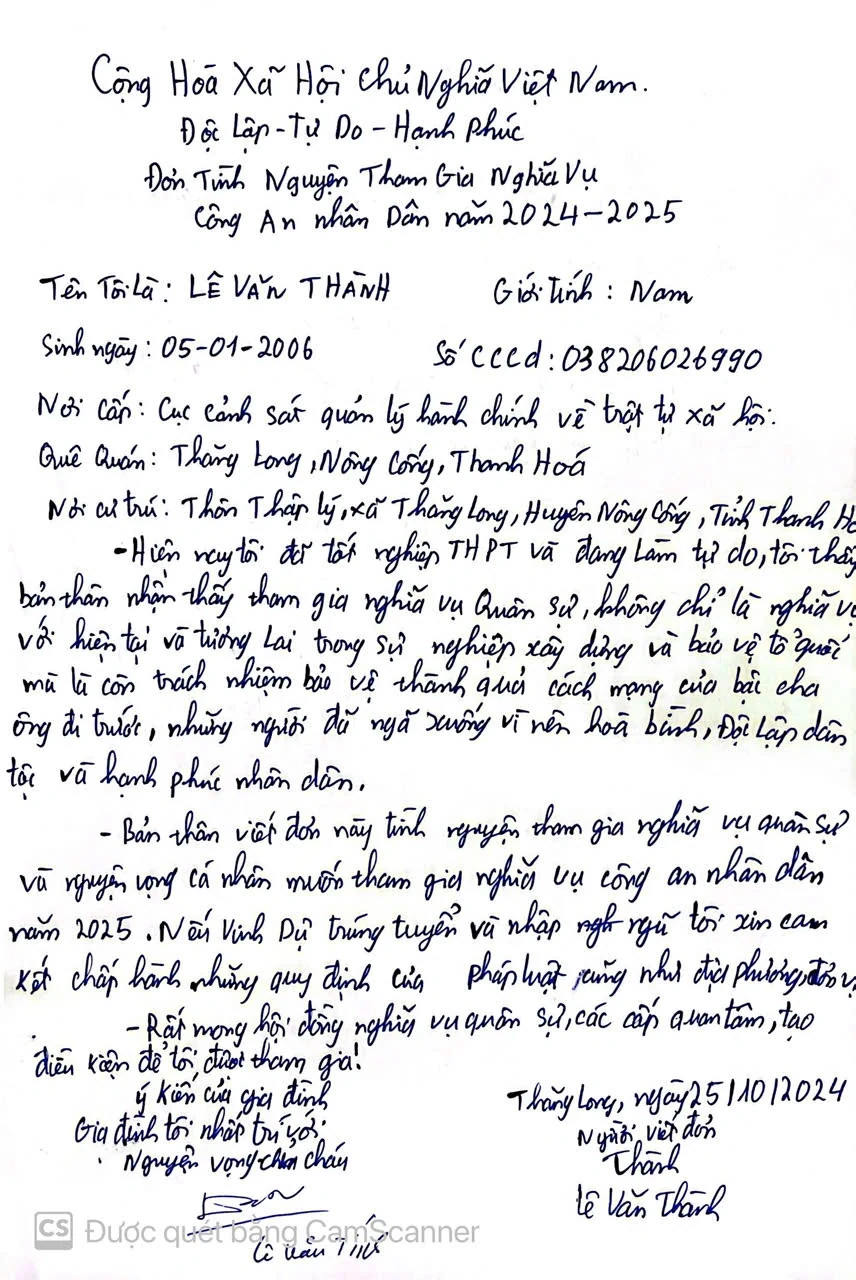 Cộng Hoà Xã Hội Chủ Nghĩa Việt Nam.
Độc Lập - Tự Do - Hạnh Phúc
Đơn Tình Nguyện Tham Gia Nghĩa Vụ
Công An nhân Dân năm 2024-2025
Tên Tôi Là: LÊ VĂN THÀNH Giới tính: Nam
Sinh ngày: 05-01-2006 Số CCCd: 038206026990
Nơi cấp: Cục cảnh sát quản lý hành chính về trật tự xã hội.
Quê Quán: Thăng Long, Nông Cống, Thanh Hoá
Nơi cư trú: Thôn Thập lý, xã Thăng Long, Huyện Nông Cống, Tỉnh Thanh Ho
- Hiện nay tôi đã tốt nghiệp THPT và đang Làm tự do, tôi thấy
bản thân nhận thấy tham gia nghĩa vụ Quân sự, không chỉ là nghĩa vụ
với hiện tại và tương Lai trong sự nghiệp xây dựng và bảo vệ tổ quốc
mà là còn trách nhiệm bảo vệ thành quả cách mạng của bậc cha
ông đi trước, những người đã ngã xuống vì nền hoà bình, Độc Lập dân
tộc và hạnh phúc nhân dân.
- Bản thân viết đơn này tình nguyện tham gia nghĩa vụ quân sự
và nguyện vọng cá nhân muốn tham gia nghĩa vụ công an nhân dân
năm 2025. Nếu Vinh Dự trúng tuyển và nhập ngũ tôi xin cam
kết chấp hành những quy định của pháp luật, cũng như địa phương, đơn vị
- Rất mong hội đồng nghĩa vụ quân sự, các cấp quan tâm, tạo
điều kiện để tôi được tham gia!
ý kiến của gia đình
Gia đình tôi nhất trí với
Nguyện vọng của cháu
Lê Văn
Thăng Long, ngày 25/10/2024
Người viết đơn
Thành
Lê Văn Thành
CS Được quét bằng CamScanner